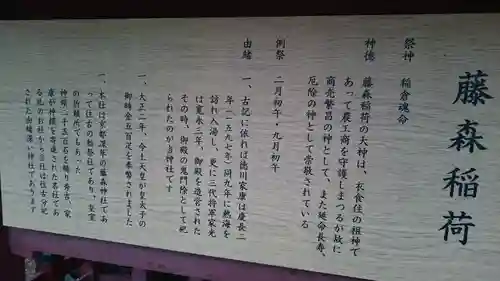 藤森稲荷
祭神　稲倉魂命
神徳　藤森稲荷の大神は、衣食住の祖神で
あって農工商を守護しまつるが故に
商売繁昌の神として、また延命長寿、
厄除の神として崇敬されている
例祭　二月初午・九月初午
由緒　一、古記に依れば徳川家康は慶長二
年（一五九七年）同九年に熱海を
訪れ入湯し、更に三代将軍家光
は寛永三年、御殿を造営された
その時、御殿の鬼門除として祀
られたのが当神社です
一、大正二年、今上天皇が皇太子の
御時金五百疋を奉幣されました
一、本社は京都深草の藤森神社であ
って往古の稲祭社であり、皇室
の祈願所でもあった
神領二千五百石を賜り秀吉、家
康が神領を寄進された名社であ
る此の社から当社は往古分祀
された由緒深い神社であります